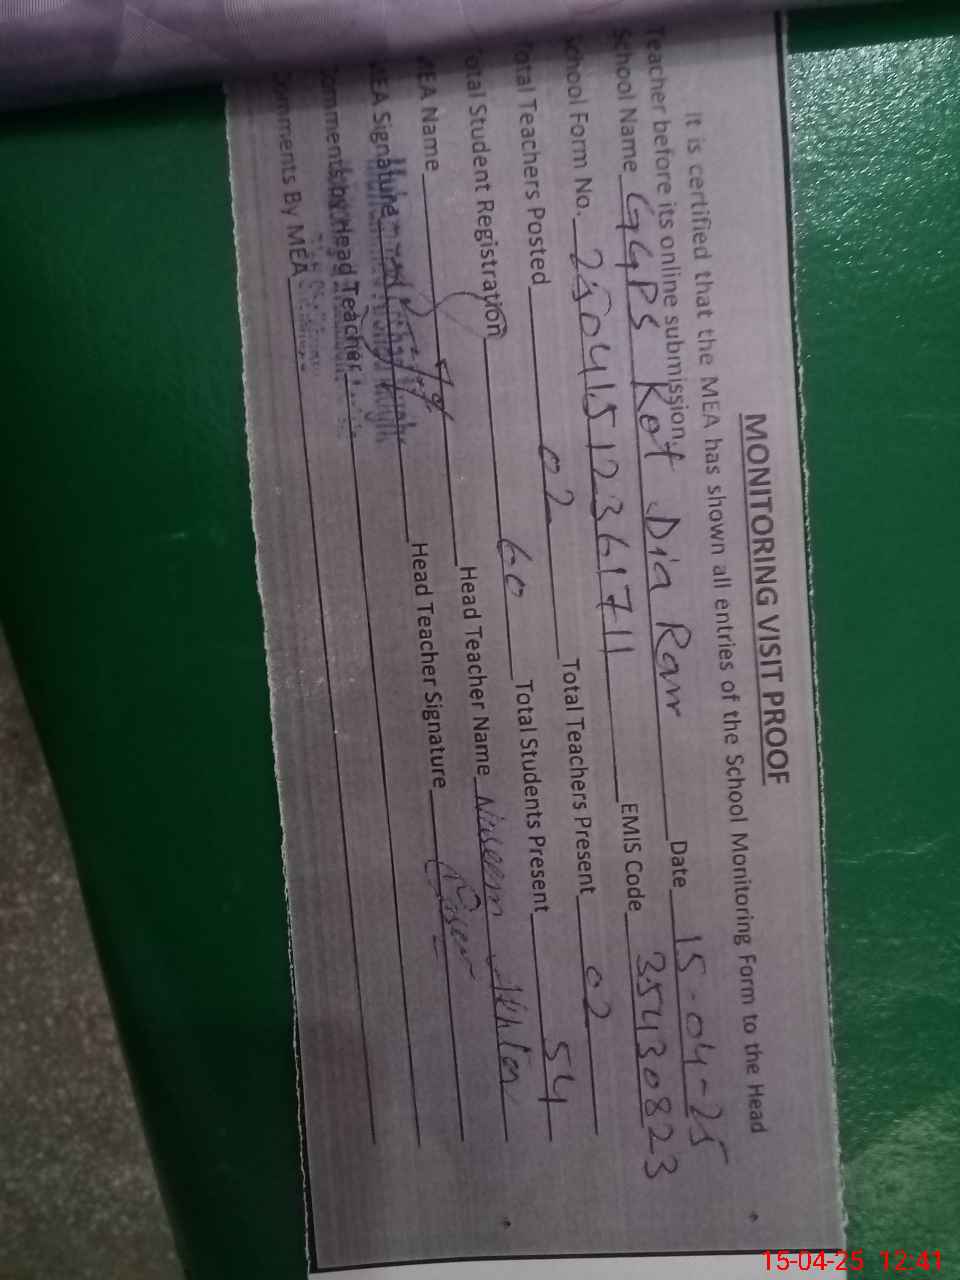 MONITORING VISIT PROOF
It is certified that the MEA has shown all entries of the School Monitoring Form to the Head
Teacher before its online submission.
School Name GGPS Kot Dia Ram Date 15-04-25
School Form No. 25041512361711 EMIS Code 35430823
Total Teachers Posted 02 Total Teachers Present 02
Total Student Registration 60 Total Students Present 54
MEA Name Head Teacher Name Naseem Akhtar
MEA Signature Head Teacher Signature
Comments by Head Teacher
Comments By MEA
15-04-25 12:41